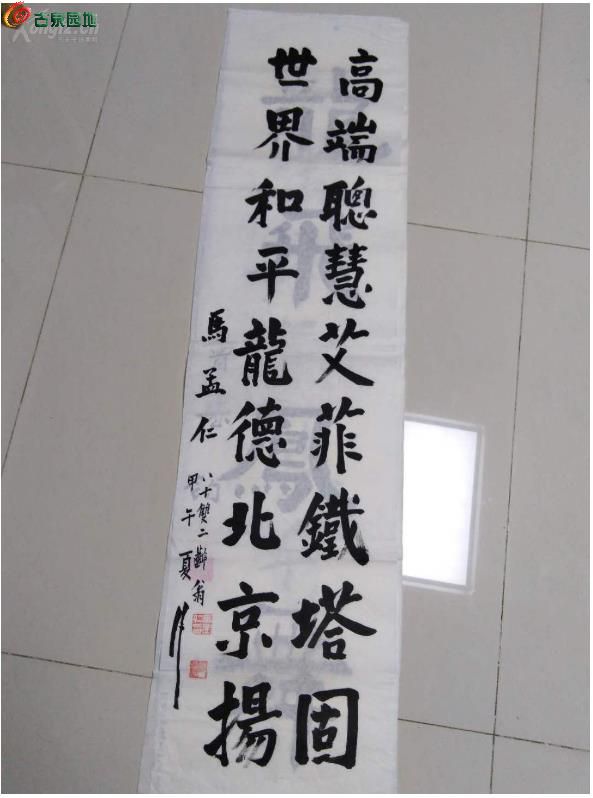 古泉园地
高端聰慧艾菲鐵塔固
世界和平龍德北京揚
馬孟仁
八十雙二齡翁
甲午夏